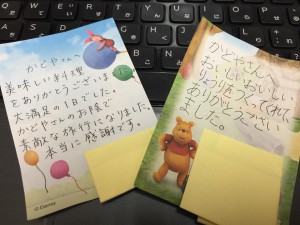 かどやさんへ
美味しい料理
をありがとうございます
大満足の1日でした。
かどやさんのお陰で
素敵な旅行になりました。
本当に感謝です。
© Disney
かどやさん、
おいしいおいしい
りょうりをつくってくれて
ありがとうござい
ました。